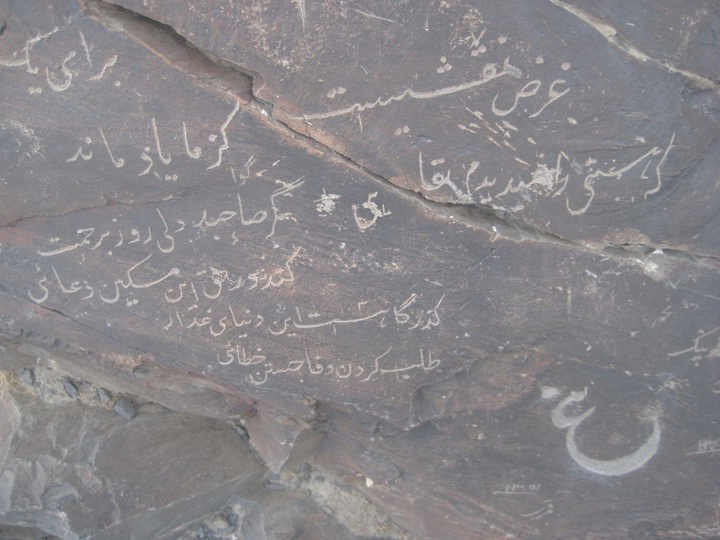 برای یک
غرض نقشیست
کز ما یاد ماند
که هستی را بقا
مگر صاحبدلی روز برحمت
کند در حق این مسکین دعائی
گذرگاهست این دنیای غدار
طلب کردن وفا جستن خطائی